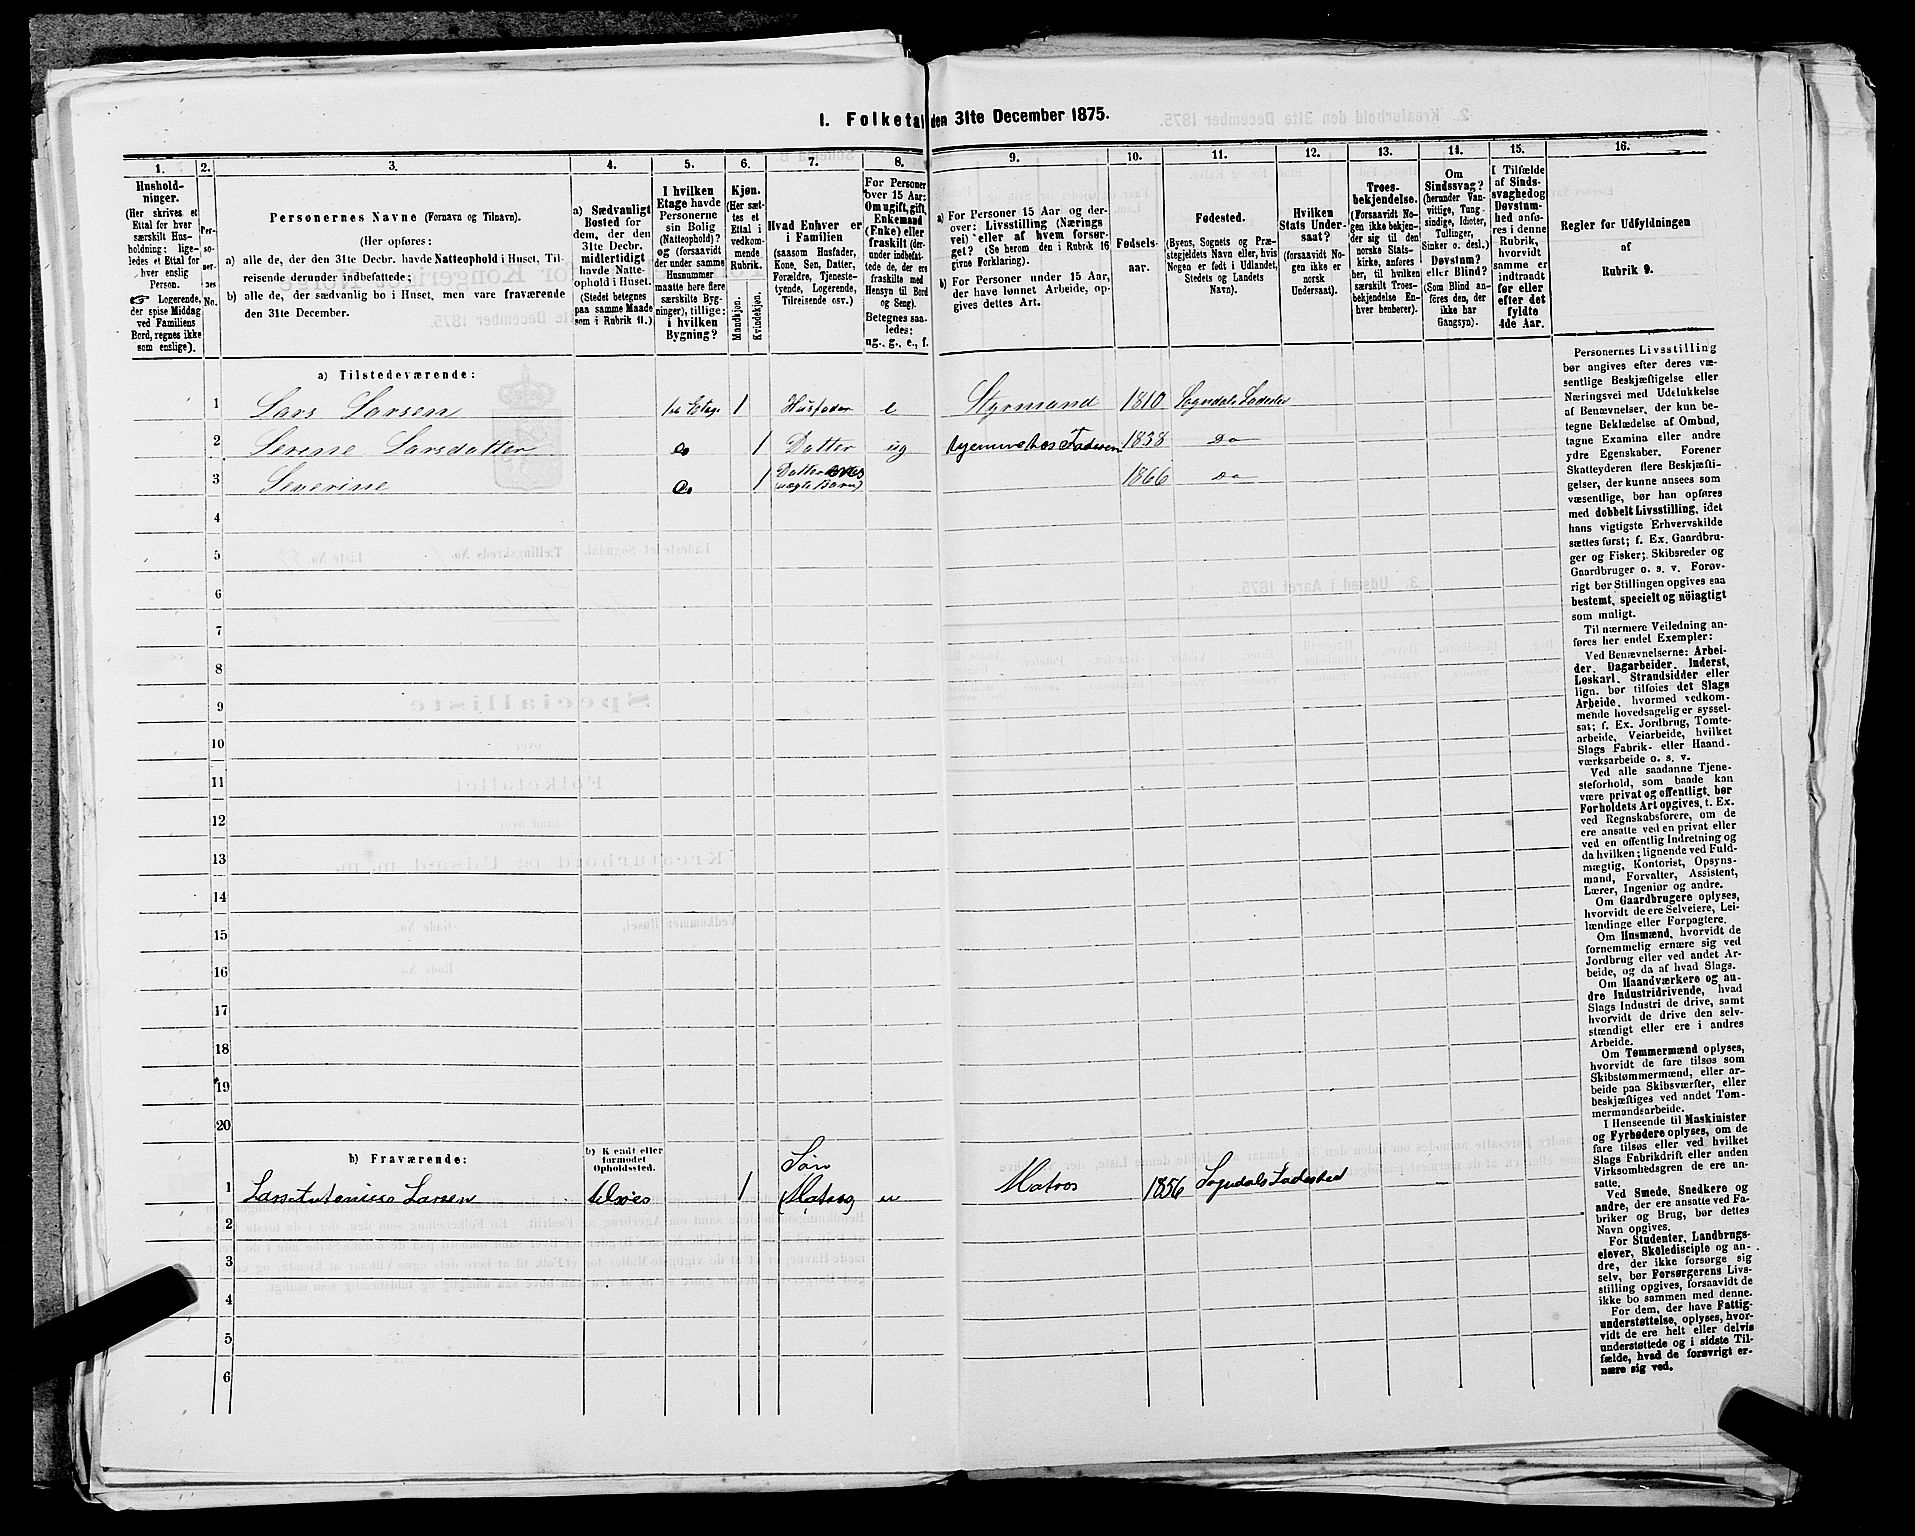 I. Folketal den 31te December 1875.
1. 2. 3. 4. 5. 6. 7. 8. 9. 10. 11. 12. 13. 14. 15. 16.
Hushold-
ninger.
(Her skrives et
Ettal for hver
særskilt Hus-
holdning; lige-
ledes et Ettal for
hver enslig
Person.
☞ Logerende,
der spise Middag
ved Familiens
Bord, regnes ikke
som enslige).
Per-
so-
ner-
nes
No.
Personernes Navne (Fornavn og Tilnavn).
(Her opføres:
a) alle de, der den 31te Decbr. havde Natteophold i Huset, Til-
reisende derunder indbefattede;
b) alle de, der sædvanlig bo i Huset, men vare fraværende
den 31te December.
a) Sædvanligt
Bosted for
dem, der den
31te Decbr.
midlertidigt
havde Natte-
ophold i Huset.
(Stedet betegnes
paa samme Maade
som i Rubrik 11.)
I hvilken
Etage havde
Personerne
sin Bolig
(Natteophold)?
og (forsaavidt
der under samme
Husnummer
maatte høre flere
særskilte Byg-
ninger), tillige:
i hvilken
Bygning?
Kjøn.
(Her sæt-
tes et
Ettal i
vedkom-
mende
Rubrik.
Mandkjøn.
Kvindekjøn.
Hvad Enhver er
i Familien
(saasom Husfader,
Kone, Søn, Datter,
Forældre, Tjeneste-
tyende, Logerende,
Tilreisende osv.)
For Personer
over 15 Aar:
Om ugift, gift,
Enkemand
(Enke) eller
fraskilt (der-
under indbefat-
tede de, der ere
fraskilte med
Hensyn til Bord
og Seng).
Betegnes saa-
ledes:
ug., g., e., f.
a) For Personer 15 Aar og der-
over: Livsstilling (Nærings
vei) eller af hvem forsør-
get? (Se herom den i Rubrik 16
givne Forklaring).
b) For Personer under 15 Aar,
der have lønnet Arbeide, op-
gives dettes Art.
Fødsels-
aar.
Fødested.
(Byens, Sognets og Præ-
stegjeldets Navn eller, hvis
Nogen er født i Udlandet,
Stedets og Landets
Navn).
Hvilken
Stats Under-
saat?
(forsaavidt No-
gen ikke er
norsk
Undersaat).
Troes-
bekjendelse.
(Forsaavidt No-
gen ikke bekjen-
der sig til den
norske Stats-
kirke, anføres
her, til hvilken
særskilt Troes-
bekjendelse En-
hver henhører).
Om
Sindssvag?
(herunder Van-
vittige, Tung-
sindige, Idioter,
Tullinger,
Sinker o. desl.)
Døvstum?
eller Blind?
(Som Blind an-
føres den, der
ikke har
Gangsyn).
I Tilfælde
af Sinds-
svaghed og
Døvstum-
hed anfø-
res i denne
Rubrik,
hvorvidt
samme er
indtraadt
før eller
efter det
fyldte
4de Aar.
Regler for Udfyldningen
af
Rubrik 9.
a) Tilstedeværende:
1 Lars Larsen 1ste Etage 1 Husfader e Styrmand 1810 Sogndals Ladested
2 Serine Larsdatter do 1 Datter ug hjemme hos Faderen 1858 do
3 Severine do 1 Datter (uægte Barn) 1866 do
4
5
6
7
8
9
10
11
12
13
14
15
16
17
18
19
20
b) Fraværende:
b) Kjendt eller
formodet
Opholdssted.
1 Lars Antonisse Larsen tilsøes 1 Søn (Matros) Matros 1856 Sogndals Ladested
2
3
4
5
6
Personernes Livsstilling
bør angives efter deres væ-
sentlige Beskjæftigelse eller
Næringsvei med Udelukkelse
af Benævnelser, der kun be-
tegne Beklædelse af Ombud,
tagne Examina eller andre
ydre Egenskaber. Forener
Skatteyderen flere Beskjæfti-
gelser, der kunne ansees som
væsentlige, bør han opføres
med dobbelt Livsstilling, idet
hans vigtigste Erhvervskilde
sættes først; f. Ex. Gaardbru-
ger og Fisker; Skibsreder og
Gaardbruger o. s. v. Forøv-
rigt bør Stillingen opgives saa
bestemt, specielt og nöiagtigt
som muligt.
Til nærmere Veiledning an-
føres her endel Exempler:
Ved Benævnelserne: Arbei-
der, Dagarbeider, Inderst,
Løskarl, Strandsidder eller
lign. bør tilføies det Slags
Arbeide, hvormed vedkom-
mende hovedsagelig er syssel-
sat; f. Ex. Jordbrug, Tomte-
arbeide, Veiarbeide, hvilket
Slags Fabrik- eller Haand-
værksarbeide o. s. v.
Ved alle saadanne Tjene-
steforhold, som baade kan
være privat og offentligt, bør
Forholdets Art opgives, t. Ex.
ved Regnskabsførere, om de
ere ansatte ved en privat eller
ved en offentlig Indretning og
da hvilken; lignende ved Fuld-
mægtig, Kontorist, Opsyns-
mand, Forvalter, Assistent,
Lærer, Ingeniør og andre.
Om Gaardbrugere oplyses,
hvorvidt de ere Selveiere, Lei-
lændinge eller Forpagtere.
Om Husmænd, hvorvidt de
fornemmelig ernære sig ved
Jordbrug eller ved andet Ar-
beide, og da af hvad Slags.
Om Haandværkere og an-
dre Industridrivende, hvad
Slags Industri de drive, samt
hvorvidt de drive den selv-
stændigt eller ere i andres
Arbeide.
Om Tømmermænd oplyses,
hvorvidt de fare tilsøs som
Skibstømmermænd, eller ar-
beide paa Skibsværfter, eller
beskjæftiges ved andet Tøm-
mermandsarbeide.
I Henseende til Maskinister
og Fyrbødere oplyses, om de
fare tilsøs eller ved hvilket
Slags Fabrikdrift eller anden
Virksomhedsgren de ere an-
satte.
Ved Smede, Snedkere og
andre, der ere ansatte ved Fa-
briker og Brug, bør dettes
Navn opgives.
For Studenter, Landbrugs-
elever, Skoledisciple og an-
dre, der ikke forsørge sig
selv, bør Forsørgerens Livs-
stilling opgives, forsaavidt de
ikke bo sammen med denne.
For dem, der have Fattig-
understøttelse, oplyses, hvor-
vidt de ere helt eller delvis
understøttede og i sidste Til-
fælde, hvad de forøvrigt er-
nære sig ved.